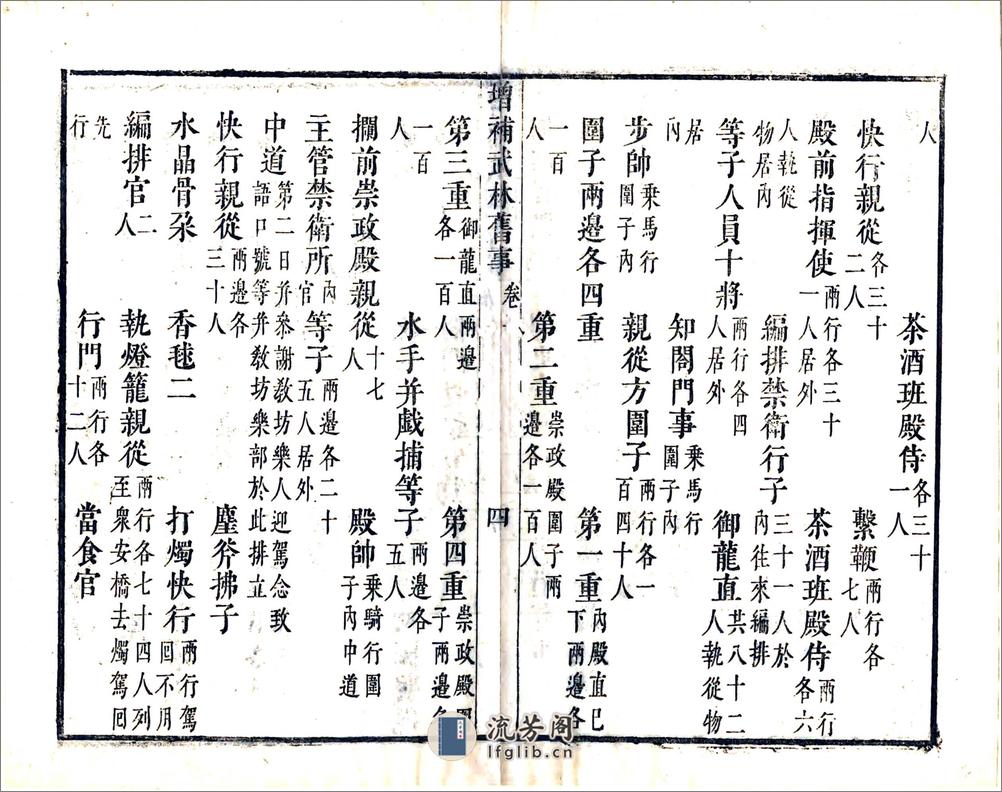 人　茶酒班殿侍各三十一人
快行親從各三十二人　繫鞭兩行各七人
殿前指揮使兩行各三十一人居外　茶酒班殿侍兩行各六
人執從物居內　編排禁衛行子三十一人於內往來編排
等子人員十將兩行各四人居外　御龍直共八十二人執從物
居內　知閤門事乘馬行圍子內
步帥乘馬行圍子內　親從方圍子兩行各一百四十人
圍子兩邊各四重　第一重內殿直已下兩邊各
一百人　第二重崇政殿圍子兩邊各一百人
增補武林舊事　卷八　四
第三重御龍直兩邊各一百人　第四重崇政殿圍子兩邊各
一百人　水手并戲捕等子兩邊各五人
攔前崇政殿親從十七人　殿帥乘騎行圍子內中道
主管禁衛所內官　等子兩邊各二十五人居外
中道第二日并參謝教坊樂人迎駕念致語口號等并教坊樂部於此排立
快行親從兩邊各三十人　麈斧拂子
水晶骨朶　香毬二　打燭快行兩行駕回不用
編排官二人　執燈籠親從兩行各七十四人列至衆安橋去燭駕回
先行　行門兩行各十二人　當食官
流芳阁
lfglib.cn